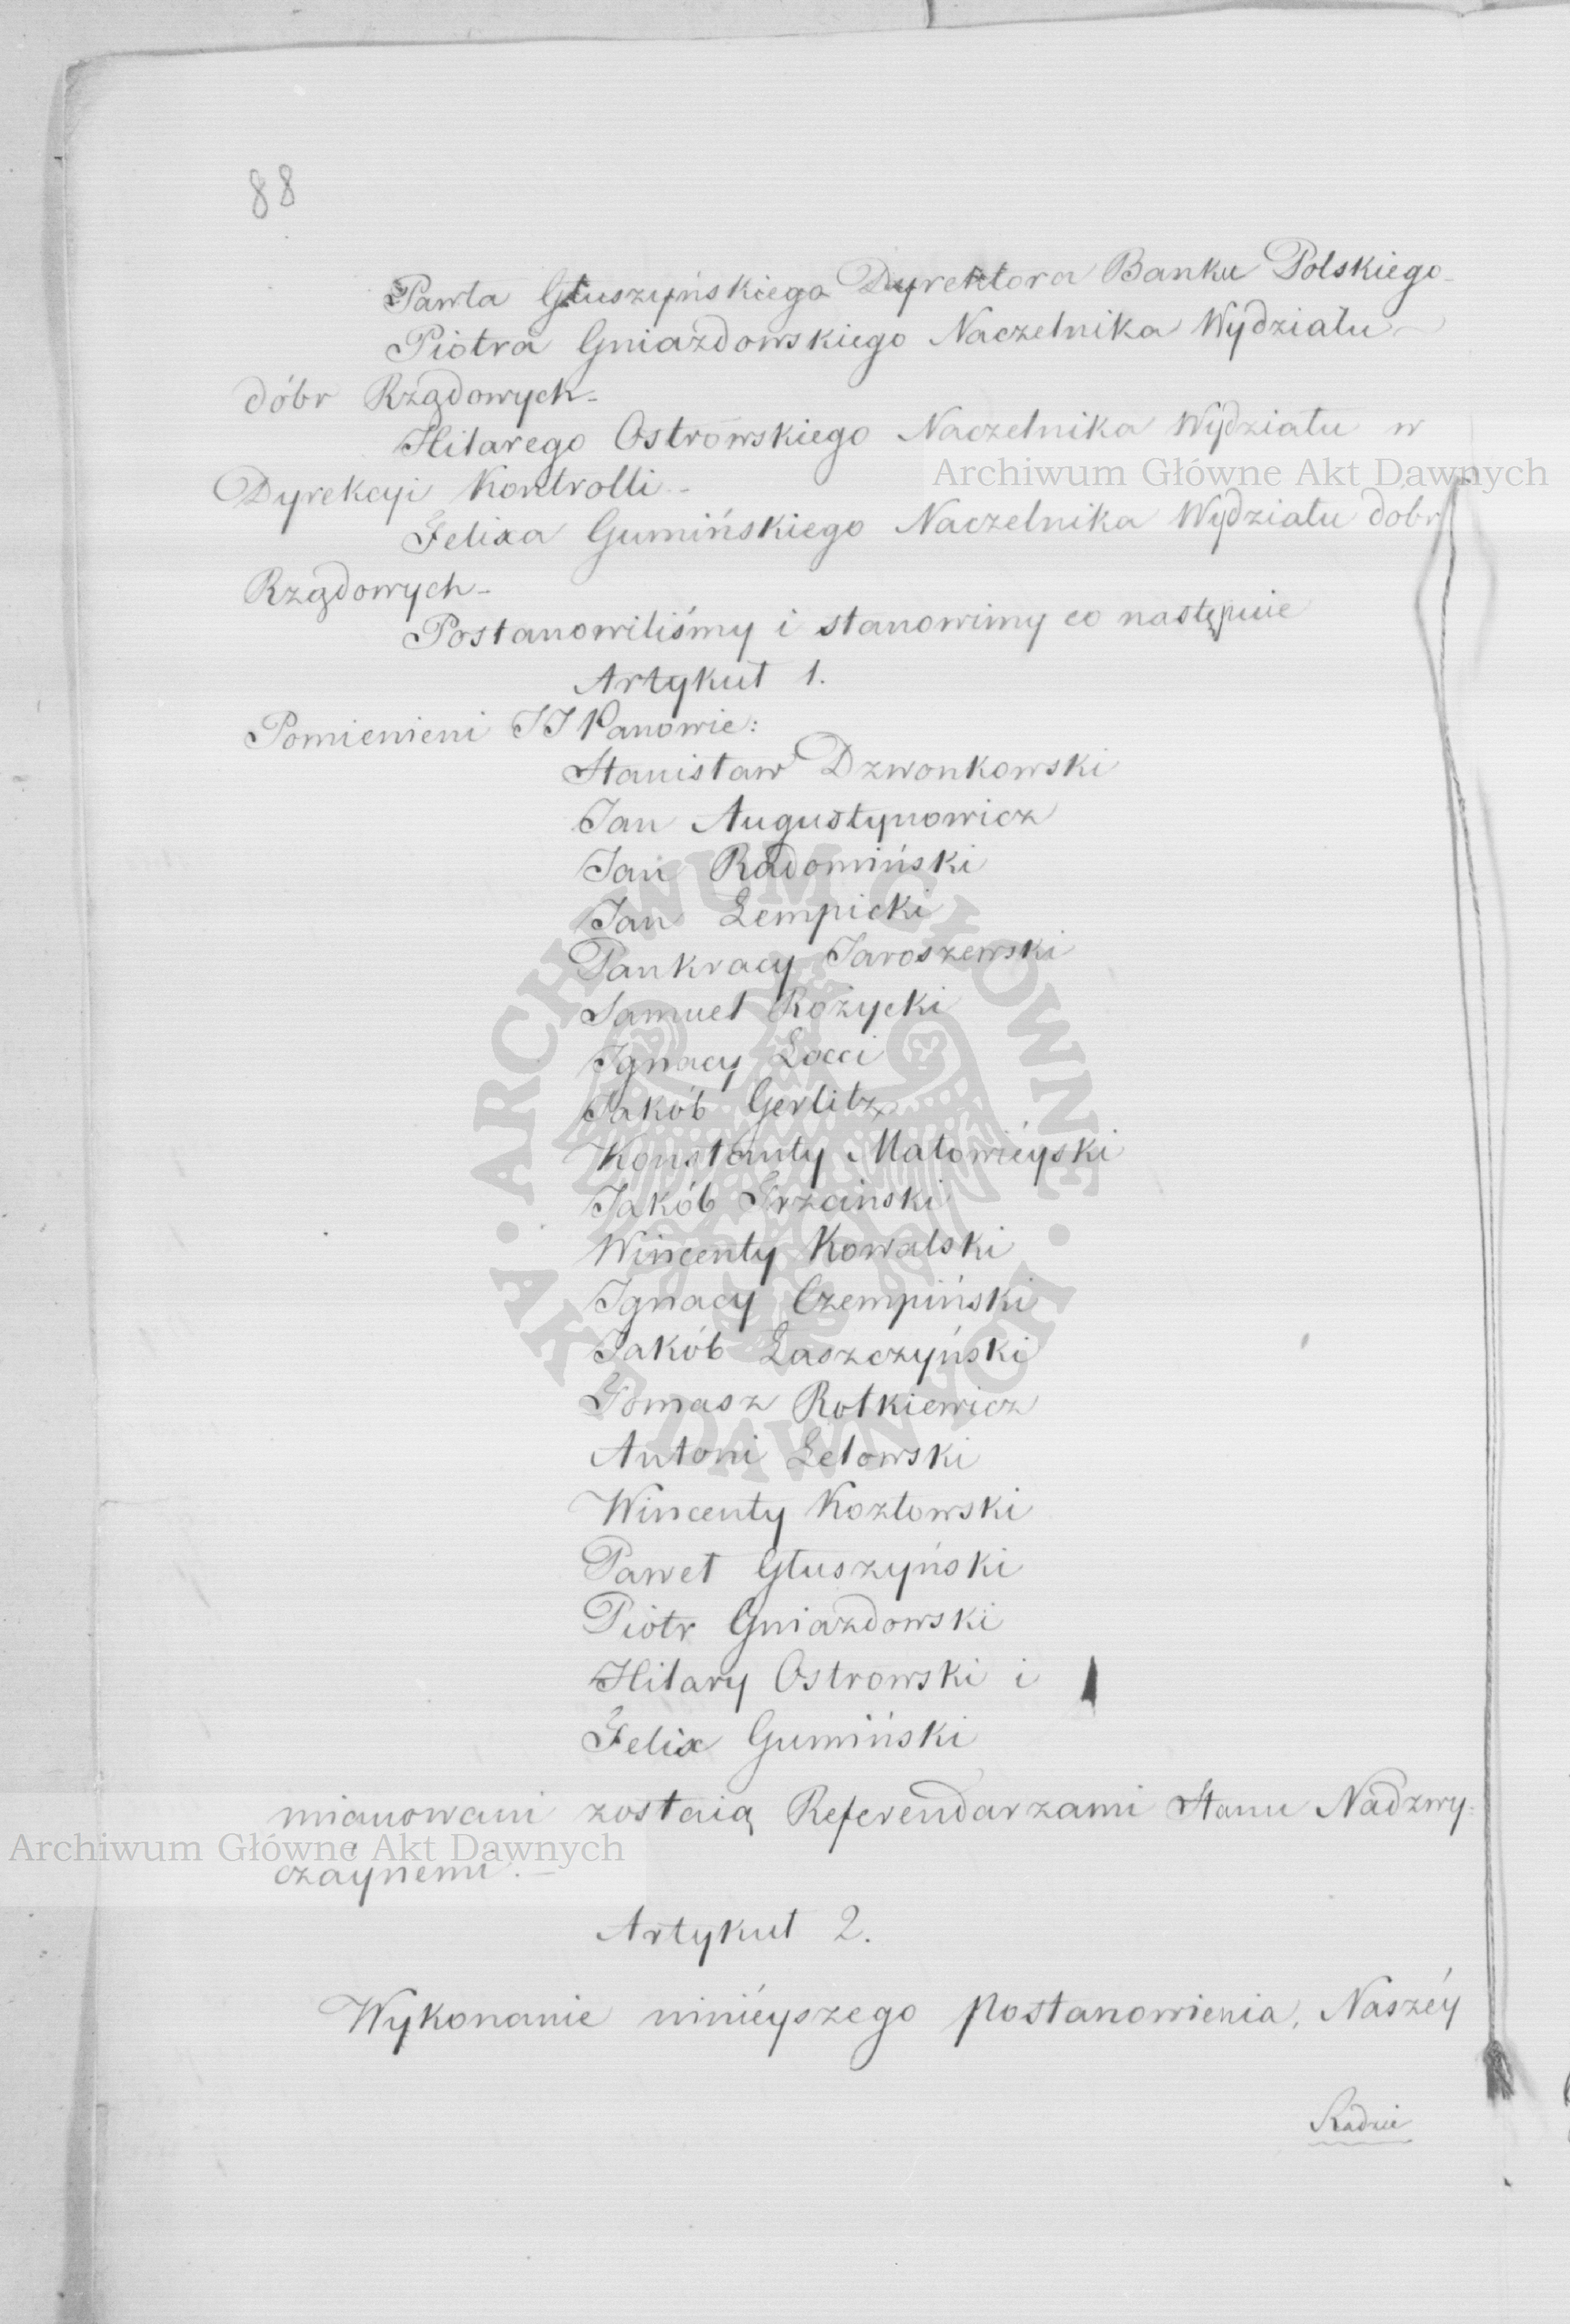 88
Pawła Głuszyńskiego Dyrektora Banku Polskiego
Piotra Gniazdowskiego Naczelnika Wydziału
dóbr Rządowych
Hilarego Ostrowskiego Naczelnika Wydziału w
Archiwum Główne Akt Dawnych
Dyrekcyi Kontrolli
Felixa Gumińskiego Naczelnika Wydziału dóbr
Rządowych
Postanowiliśmy i stanowimy co następuie
Artykuł 1.
Pomienieni JJ Panowie:
Stanisław Dzwonkowski
Jan Augustynowicz
Jan Radomiński
Jan Łempicki
Pankracy Jaroszewski
Samuel Rożycki
Ignacy Locci
Jakób Gerlitz
Konstanty Małowiéyski
Jakób
Wincenty Kowalski
Ignacy Czempiński
Jakób Łaszczyński
Tomasz Rotkiewicz
Antoni Łetowski
Wincenty Kozłowski
Paweł Głuszyński
Piotr Gniazdowski
Hilary Ostrowski i
Felix Gumiński
ARCHIWUM GŁÓWNE AKT DAWNYCH
mianowani zostaią Referendarzami Stanu Nadzwy=
Archiwum Główne Akt Dawnych
czaynemi.
Artykuł 2.
Wykonanie niniéyszego Postanowienia, Naszéy
Radzie